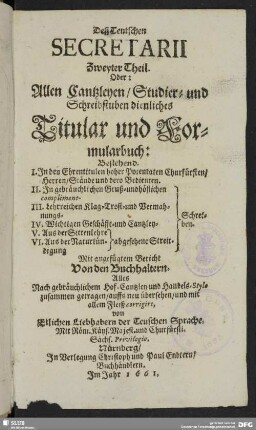 Deß Teutschen
SECRETARII
Zweyter Theil.
Oder:
Allen Cantzleyen/ Studier- und
Schreibstuben dienliches
Titular und For-
mularbuch:
Bestehend.
I. In den Ehrentituln hoher Potentaten Churfürsten/
Herren/ Stände und dero Bedienten.
II. In gebräuchlichen Gruß- und höflichen
compliment-
III. Lehrreichen Klag- Trost- und Vermah-
nungs-
IV. Wichtigen Geschäfft- und Cantzley-
V. Aus der Sittenlehr
VI. Aus der Naturkün- abgesehene Streit-
digung
Schrei-
ben.
Mit angefügtem Bericht
Von den Buchhaltern.
Alles
Nach gebräuchlichem Hof- Cantzley und Handels-Stylo
zusammen getragen/ auffs neu übersehen/ und mit
allem Fleiß corrigirt,
von
Etlichen Liebhabern der Teutschen Sprache.
Mit Röm. Käys. Majest. und Churfürstl.
Sächs. Privilegio.
Nürnberg/
In Verlegung Christoph und Paul Endters/
Buchhändlern.
Im Jahr 1661.
SLUB
DFG